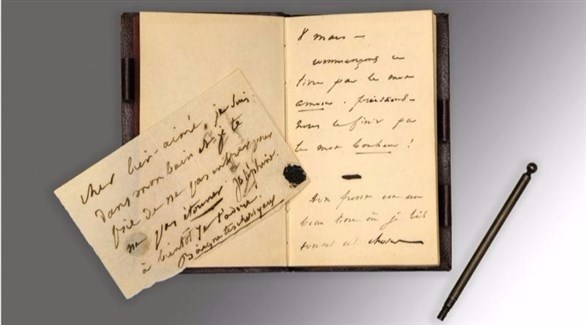 cher bien-aimé, je suis
dans mon bain et je te
prie de ne pas entrer pour
ne pas étonner Joséphine.
à bientôt je t'adore.
8 mars —
commençons ce
livre par le mot
amour. puissions-
nous le finir par
le mot bonheur!
un
beau livre où je lis
souvent